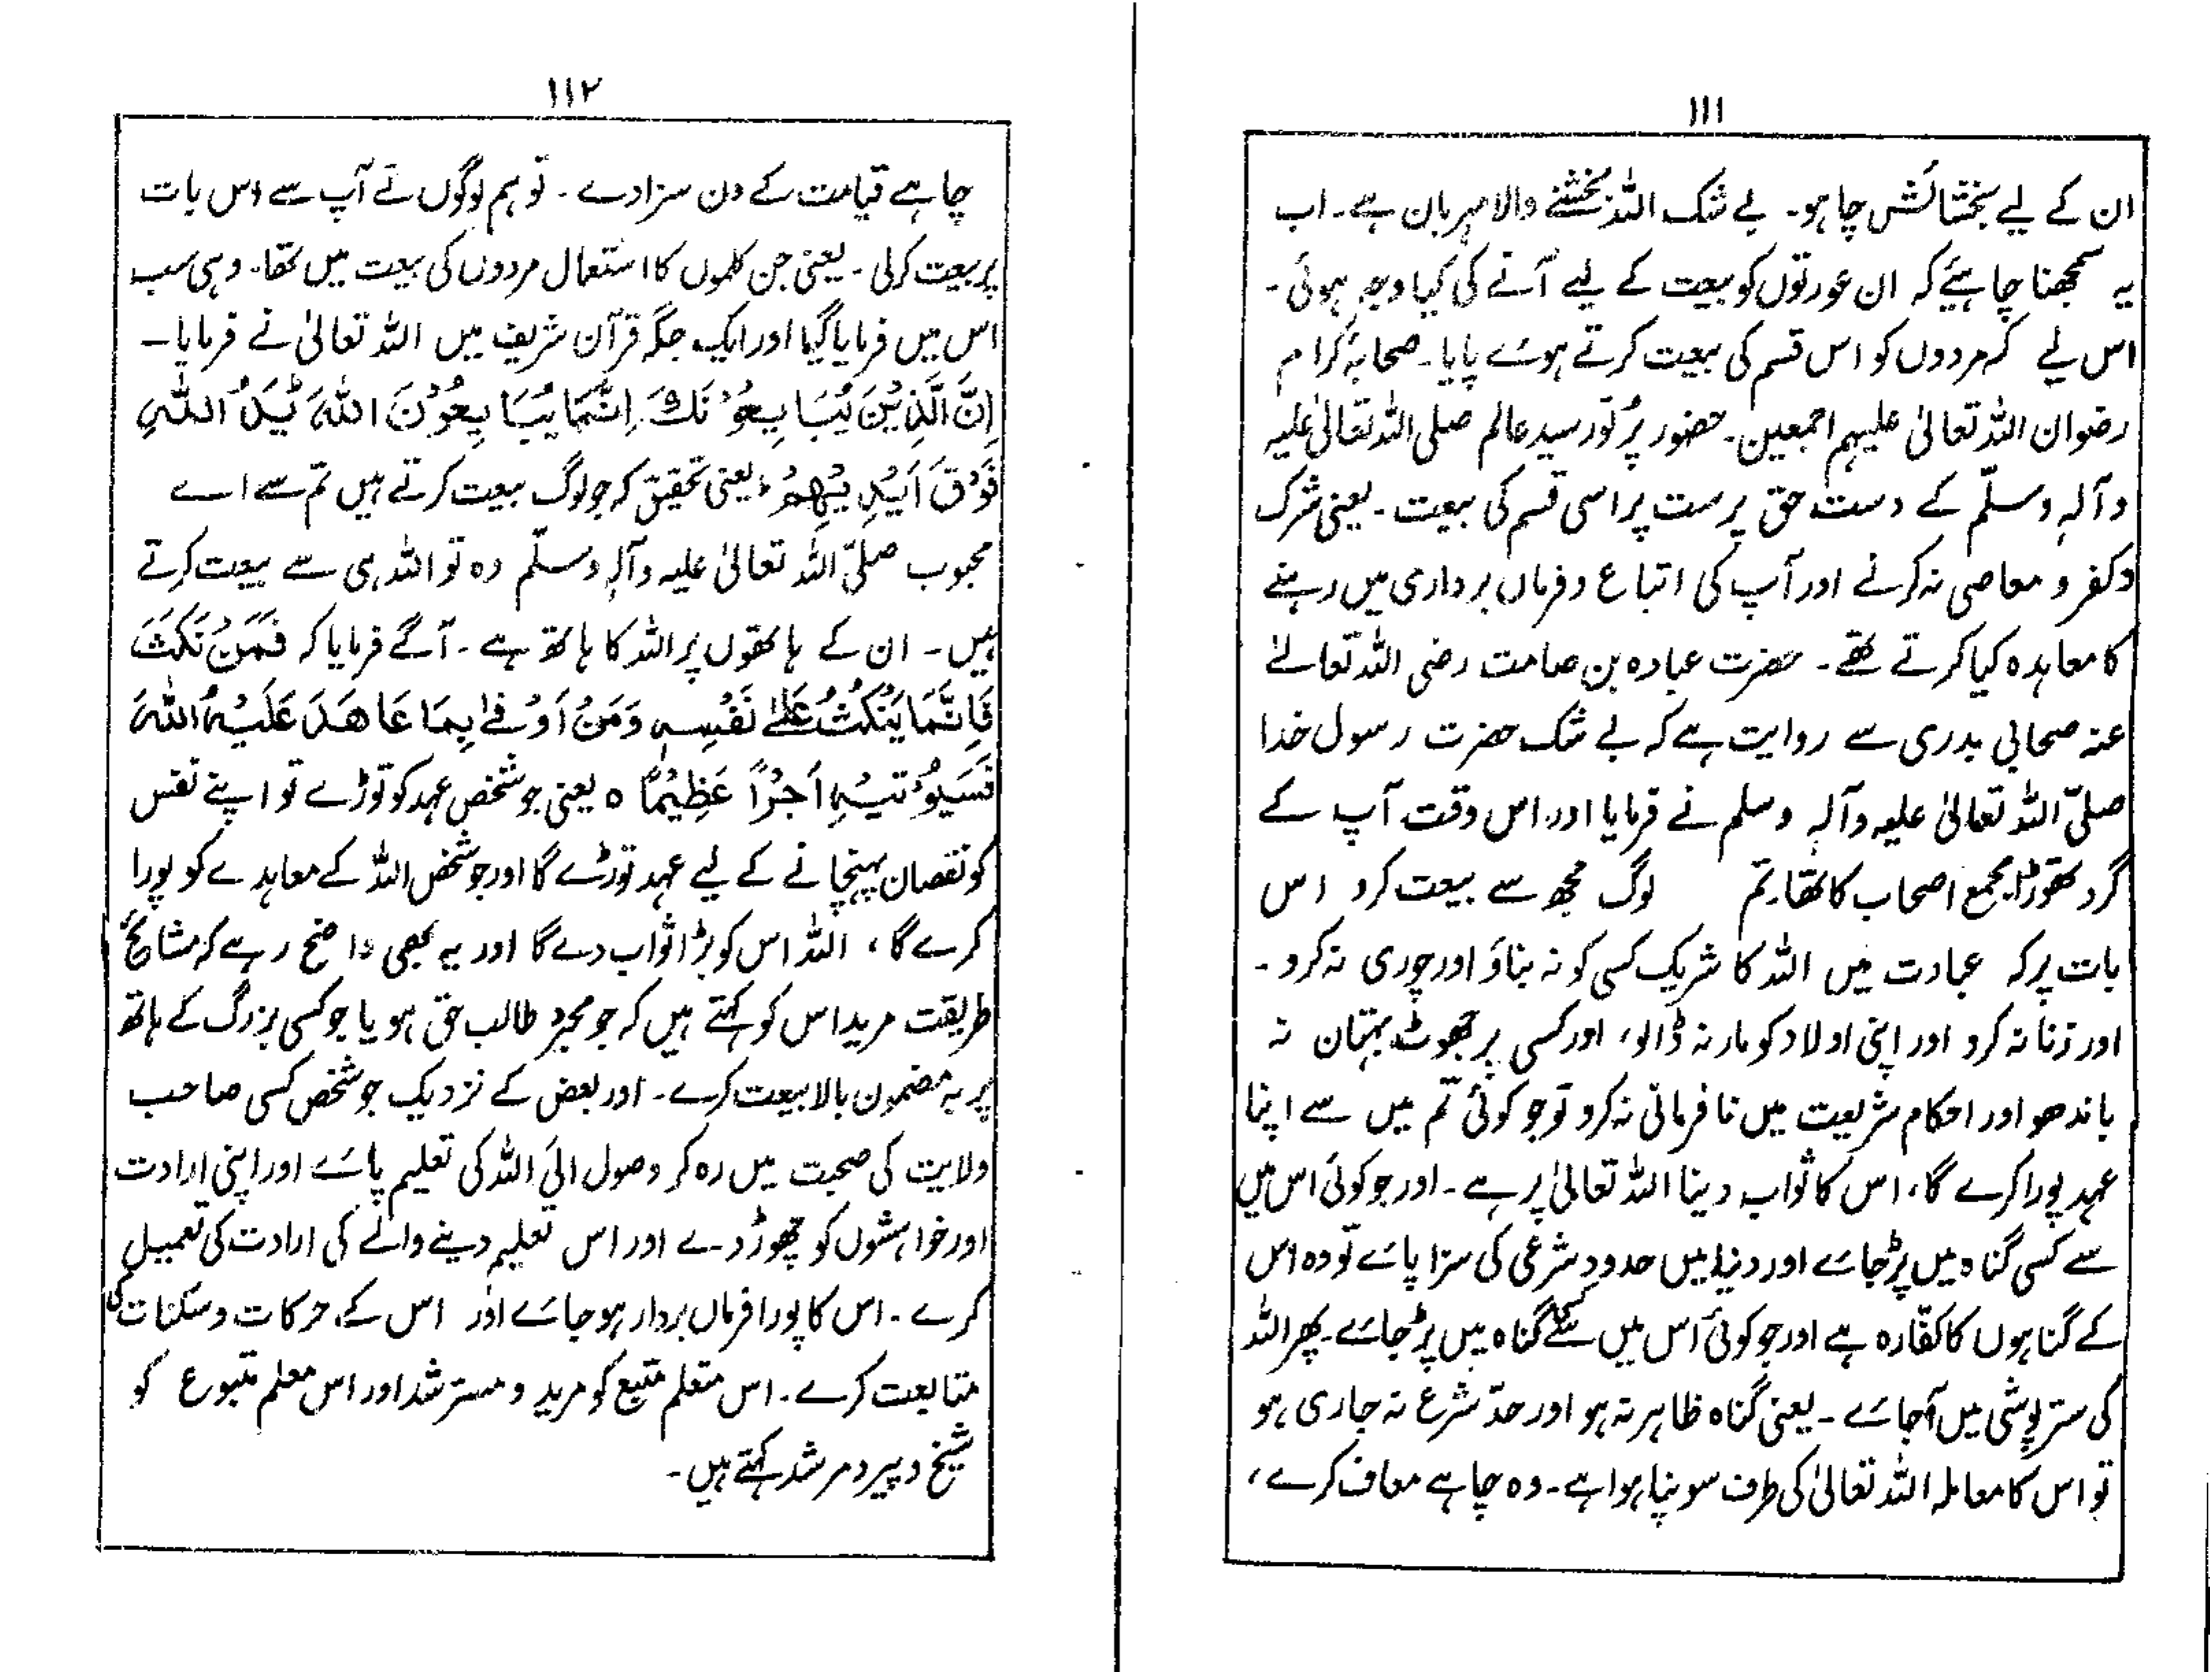 ۱۱۱
ان کے لیے بخشائش چاہو۔ بے شک اللہ بخشنے والا مہربان ہے۔ اب
یہ سمجھنا چاہئے کہ ان عورتوں کو بیعت کے لیے آنے کی کیا وجہ ہوئی۔
اس لیے کہ مردوں کو اس قسم کی بیعت کرتے ہوئے پایا۔ صحابۂ کرام
رضوان اللہ تعالیٰ علیہم اجمعین۔ حضور پُر نور سید عالم صلی اللہ تعالیٰ علیہ
وآلہٖ وسلّم کے دست حق پرست پر اسی قسم کی بیعت۔ یعنی شرک
و کفر و معاصی نہ کرنے اور آپ کی اتباع و فرماں برداری میں رہنے
کا معاہدہ کیا کرتے تھے۔ حضرت عبادہ بن صامت رضی اللہ تعالےٰ
عنہ صحابی بدری سے روایت ہے کہ بے شک حضرت رسول خدا
صلّی اللہ تعالیٰ علیہ وآلہٖ وسلم نے فرمایا اور اس وقت آپ کے
گرد تھوڑا مجمع اصحاب کا تھا۔ تم لوگ مجھ سے بیعت کرو اس
بات پر کہ عبادت میں اللہ کا شریک کسی کو نہ بناؤ اور چوری نہ کرو۔
اور زنا نہ کرو اور اپنی اولاد کو مار نہ ڈالو، اور کسی پر جھوٹ بہتان نہ
باندھو اور احکام شریعت میں نافرمانی نہ کرو تو جو کوئی تم میں سے اپنا
عہد پورا کرے گا، اس کا ثواب دینا اللہ تعالیٰ پر ہے۔ اور جو کوئی اس میں
سے کسی گناہ میں پڑ جائے اور دنیا میں حدود شرعی کی سزا پائے تو وہ اس
کے گناہوں کا کفّارہ ہے اور جو کوئی اس میں کسی گناہ میں پڑ جائے۔ پھر اللہ
کی ستر پوشی میں آجائے۔ یعنی گناہ ظاہر نہ ہو اور حدّ شرع نہ جاری ہو
تو اس کا معاملہ اللہ تعالیٰ کی طرف سونپا ہوا ہے۔ وہ چاہے معاف کرے،
۱۱۲
چاہے قیامت کے دن سزا دے۔ تو ہم لوگوں نے آپ سے اس بات
پر بیعت کرلی۔ یعنی جن کلموں کا استعمال مردوں کی بیعت میں تھا۔ وہی سب
اس میں فرمایا گیا اور ایک جگہ قرآن شریف میں اللہ تعالیٰ نے فرمایا۔
اِنَّ الَّذِیْنَ یُبَایِعُوْنَكَ اِنَّمَا یُبَایِعُوْنَ اللّٰهَ یَدُ اللّٰهِ
فَوْقَ اَیْدِیْهِمْ یعنی تحقیق کہ جو لوگ بیعت کرتے ہیں تم سے اے
محبوب صلّی اللہ تعالیٰ علیہ وآلہٖ وسلّم وہ تو اللہ ہی سے بیعت کرتے
ہیں۔ ان کے ہاتھوں پر اللہ کا ہاتھ ہے۔ آگے فرمایا کہ فَمَنْ نَكَثَ
فَاِنَّمَا یَنْكُثُ عَلٰی نَفْسِهٖ وَمَنْ اَوْفٰی بِمَا عَاهَدَ عَلَیْهُ اللّٰهَ
فَسَیُؤْتِیْهِ اَجْرًا عَظِیْمًا ٥ یعنی جو شخص عہد کو توڑے تو اپنے نفس
کو نقصان پہنچانے کے لیے عہد توڑے گا اور جو شخص اللہ کے معاہدے کو پورا
کرے گا، اللہ اس کو بڑا ثواب دے گا اور یہ بھی واضح رہے کہ مشائخ
طریقت مرید اس کو کہتے ہیں کہ جو مجرد طالب حق ہو یا جو کسی بزرگ کے ہاتھ
پر بہ مضمون بالا بیعت کرے۔ اور بعض کے نزدیک جو شخص کسی صاحب
ولایت کی صحبت میں رہ کر وصول الی اللہ کی تعلیم پائے اور اپنی ارادت
اور خواہشوں کو چھوڑ دے اور اس تعلیم دینے والے کی ارادت کی تعمیل
کرے۔ اس کا پورا فرماں بردار ہو جائے اور اس کے حرکات و سکنات کی
متابعت کرے۔ اس متعلم متبع کو مرید و مسترشد اور اس معلم متبوع کو
شیخ و پیر و مرشد کہتے ہیں۔